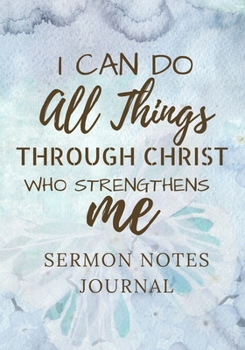 I CAN DO
All Things
THROUGH CHRIST
WHO STRENGTHENS
me
SERMON NOTES
JOURNAL